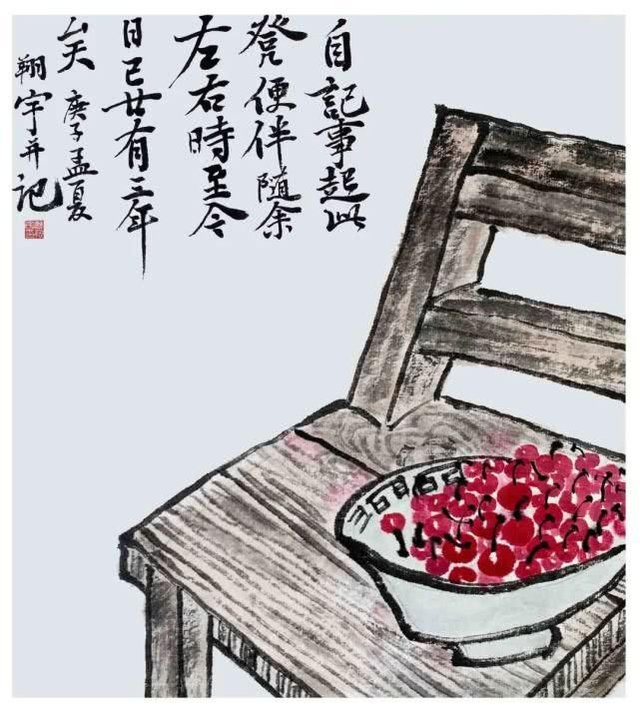 自記事起此
凳便伴隨余
左右時至今
日已廿有三年
矣 庚子孟夏
翔宇并記